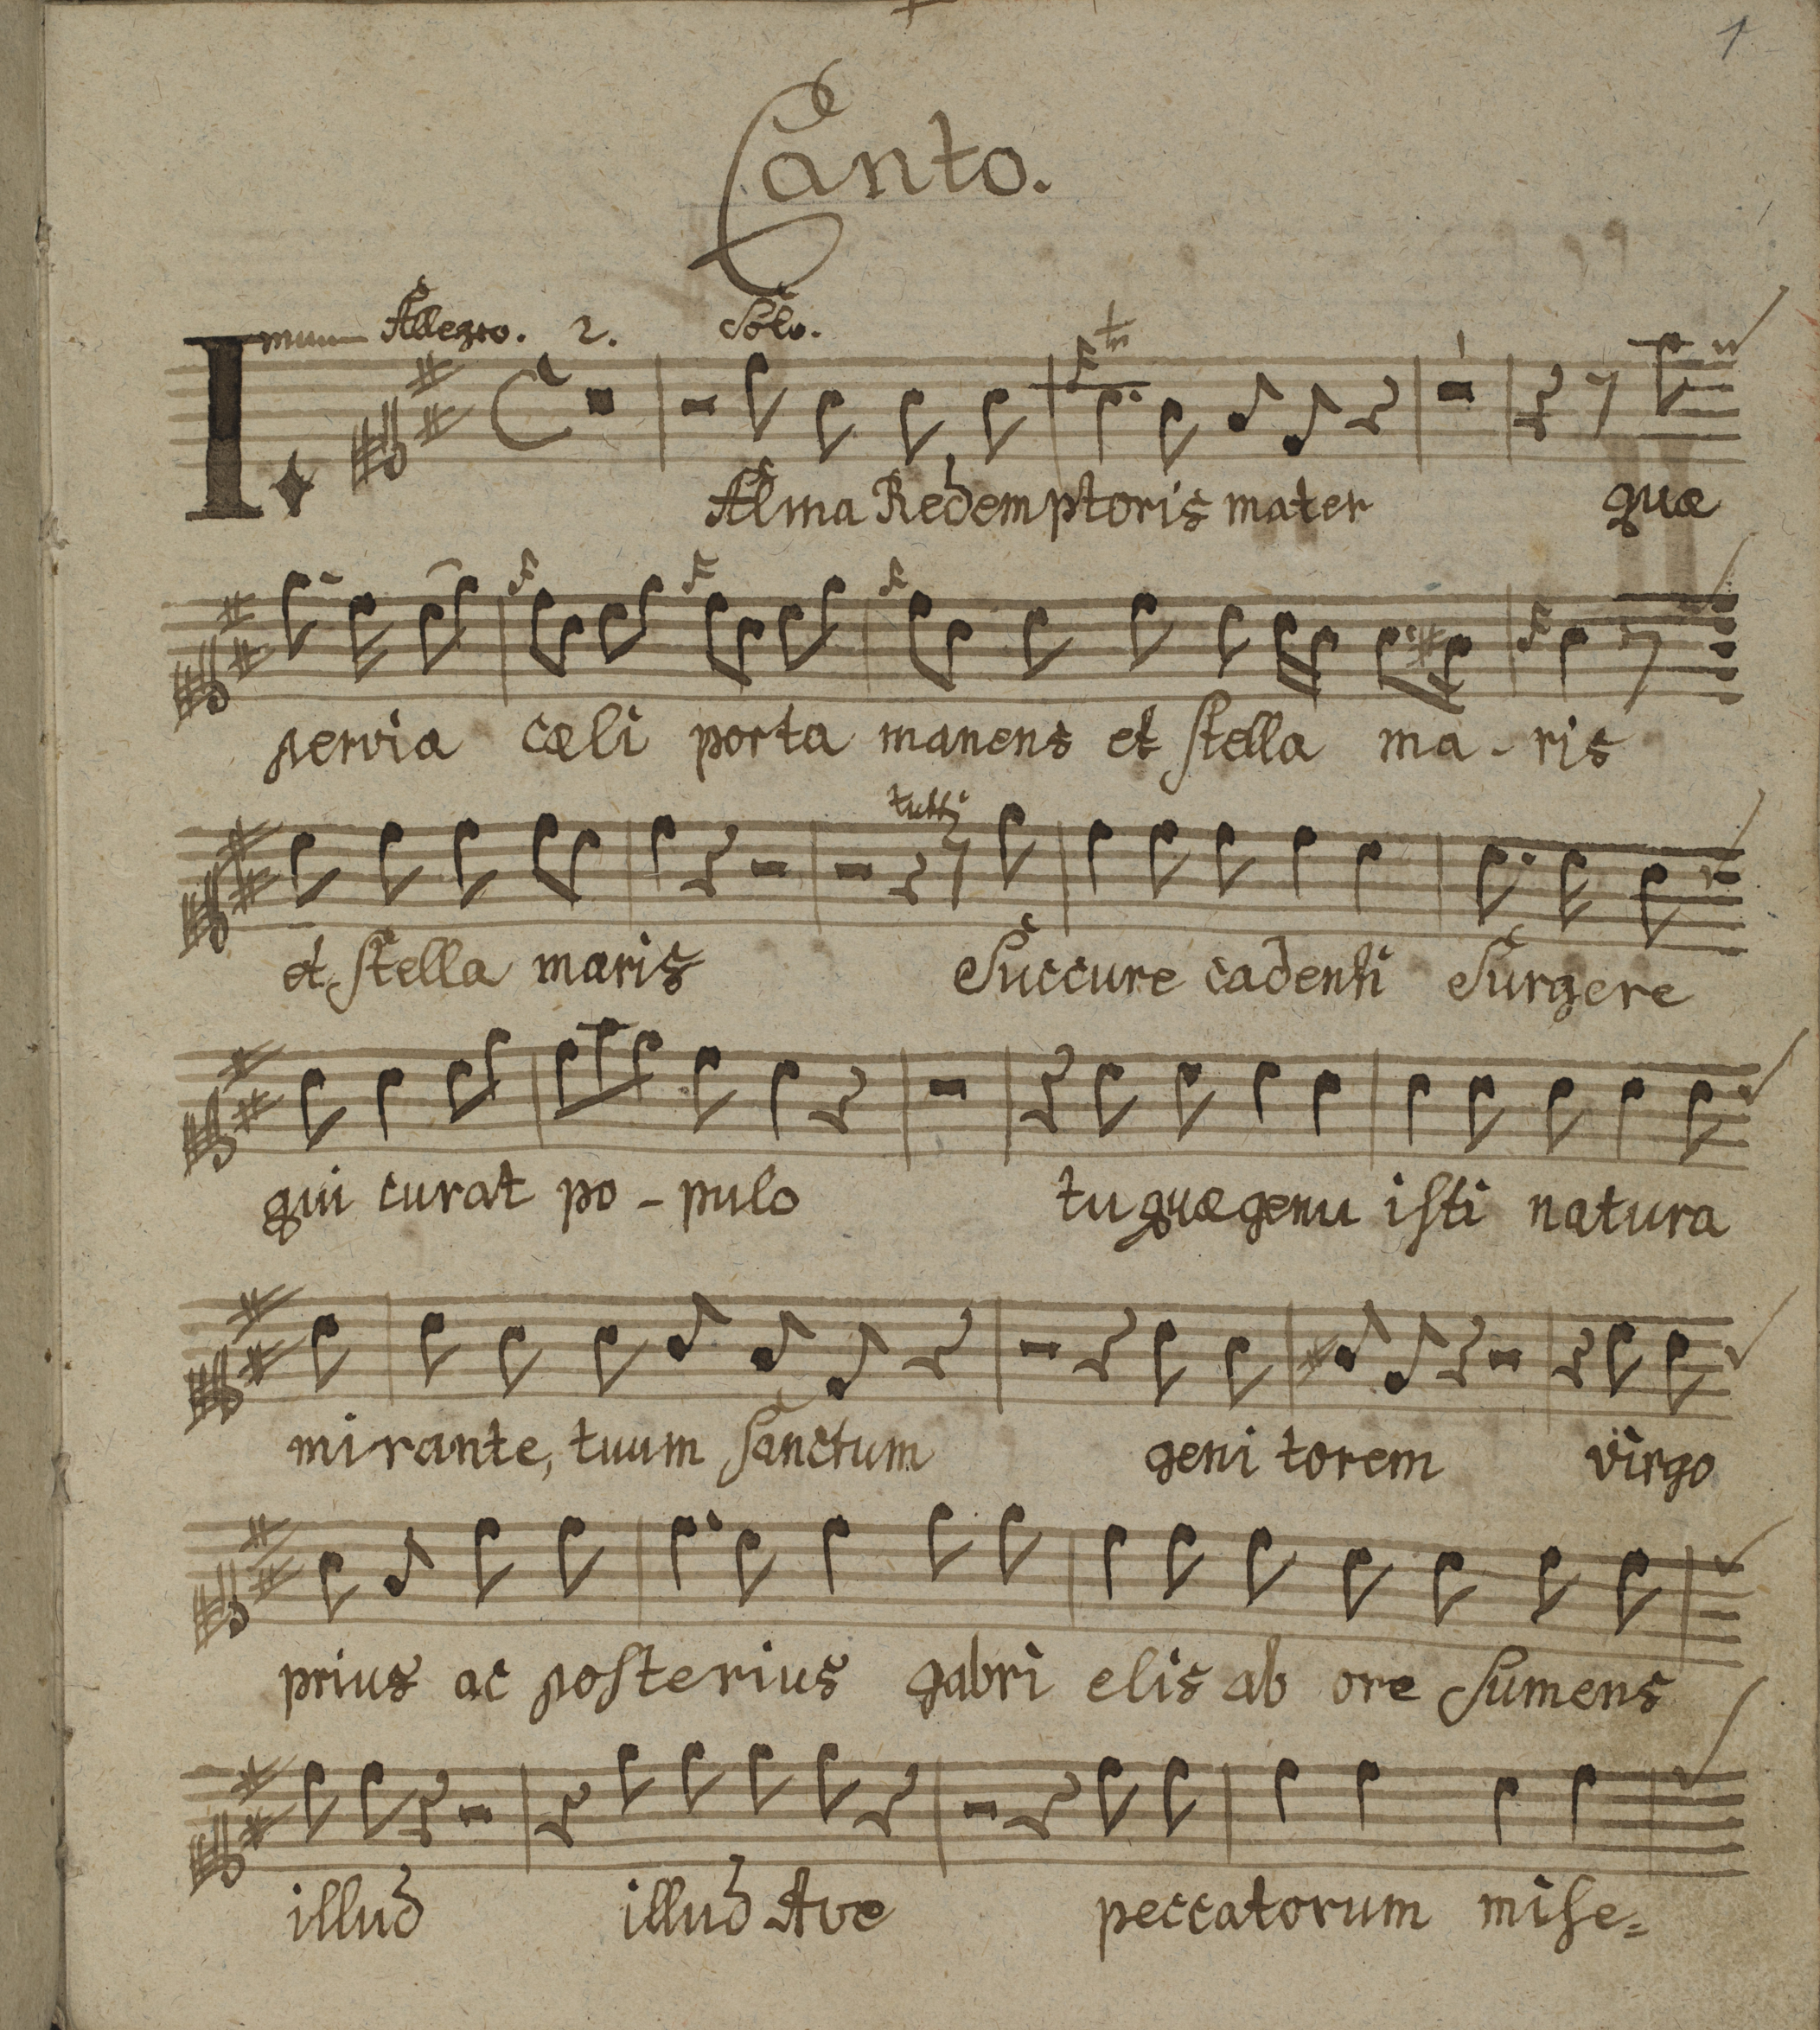 1
Canto.
I. mum Allegro. 2. Solo.
tr
Alma Redemptoris mater quæ
pervia cæli porta manens et stella ma - ris
tutti
et stella maris Succure cadenti Surgere
qui curat po - pulo tu quæ genu isti natura
mirante, tuum Sanctum geni torem virgo
prius ac posterius gabri elis ab ore Sumens
illud illud Ave peccatorum mise=